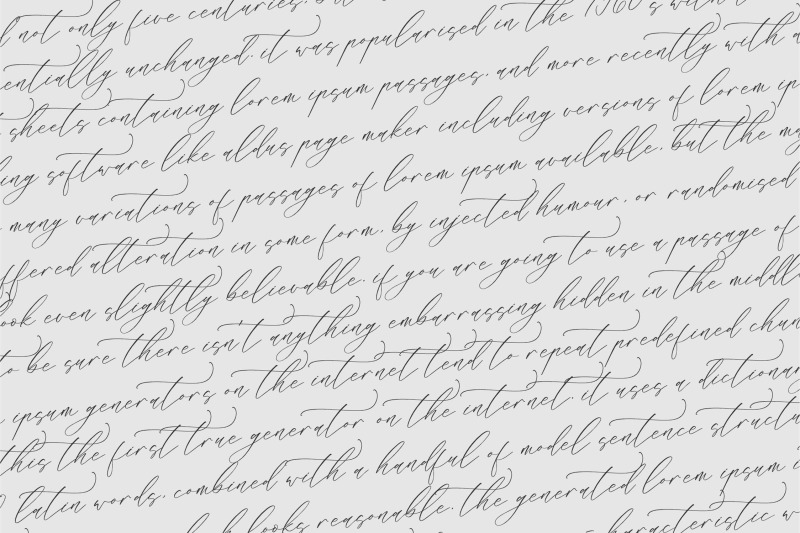 not only five centuries. but
entially unchanged. it was popularised in the 1960's with
sheets containing lorem ipsum passages. and more recently with a
ing software like aldus page maker including versions of lorem ip
many variations of passages of lorem ipsum available. but the ma
ffered alteration in some form. by injected humour. or randomised
ook even slightly believable. if you are going to use a passage of
to be sure there isn't anything embarrassing hidden in the middl
ipsum generators on the internet tend to repeat predefined chun
this the first true generator on the internet. it uses a dictionar
latin words. combined with a handful of model sentence structu
looks reasonable. the generated lorem ipsum i
haracteristic w